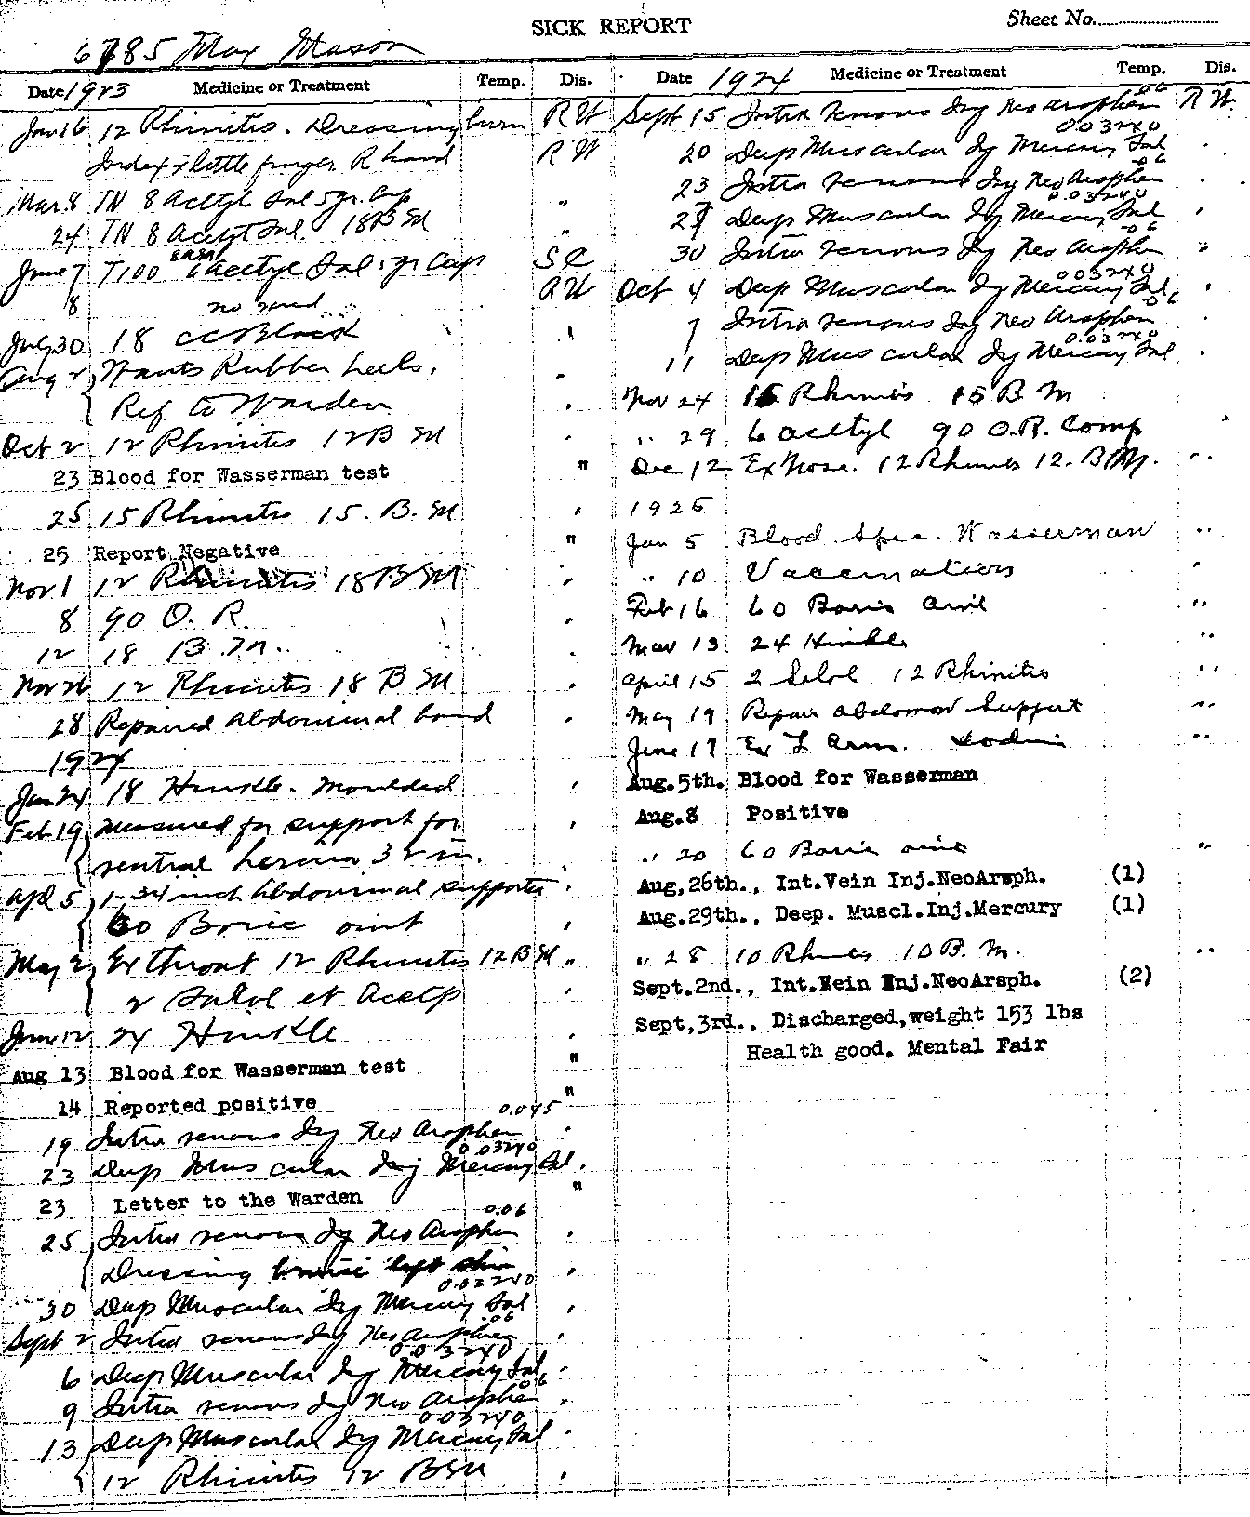 SICK REPORT
Sheet No.
6785 Max Mason
Date 1923 Medicine or Treatment Temp. Dis.
Jan 16 12 Rhinitis. Dressing burn R W
Index & little finger R hand R W
Mar. 8 TN 8 Acetyl Sal 5 gr. Cap "
24 TN 8 Acetyl Sal. 18 B M "
June 7 T100 6 Acetyl Sal 5 gr Cap S C
8 no need R W
July 30 18 cc Black "
Aug 2 Wants Rubber heels. "
Ref to Warden "
Oct 2 12 Rhinitis 12 B M "
23 Blood for Wasserman test "
25 15 Rhinitis 15. B. M "
25 Report Negative "
Nov 1 12 Rhinitis 18 B M "
8 90 O. R. "
12 18 B. M. "
Nov 26 12 Rhinitis 18 B M "
28 Repaired abdominal band "
1924
Jan 24 18 Hinkle. Moulded "
Feb 19 Measured for support for "
ventral hernia 32 in.
Apl 5 1-34 inch Abdominal supporter "
60 Boric oint "
May 2 Ex throat 12 Rhinitis 12 B M "
2 Salol et Acetp "
June 12 24 Hinkle "
Aug 13 Blood for Wasserman test "
14 Reported positive "
19 Intra venous Inj Neo Arsphen 0.045 "
23 Deep Muscular Inj Mercury Sal. 0.03240 "
23 Letter to the Warden "
25 Intra venous Inj Neo Arsphen 0.06 "
Dressing left shin "
30 Deep Muscular Inj Mercury Sal 0.03240 "
Sept 2 Intra venous Inj Neo Arsphen .06 "
6 Deep Muscular Inj Mercury Sal 0.03240 "
9 Intra venous Inj Neo Arsphen 06 "
13 Deep Muscular Inj Mercury Sal 0.03240 "
12 Rhinitis 12 B M "
Date 1924 Medicine or Treatment Temp. Dis.
Sept 15 Intra Venous Inj Neo Arsphen 06 R W.
20 Deep Muscular Inj Mercury Sal 0.03240 "
23 Intra venous Inj Neo Arsphen 06
27 Deep Muscular Inj Mercury Sal 0.03240 "
30 Intra venous Inj Neo Arsphen 06 "
Oct 4 Deep Muscular Inj Mercury Sal 0.03240 "
7 Intra venous Inj Neo Arsphen 06 "
11 Deep Muscular Inj Mercury Sal 0.03240 "
Nov 24 15 Rhinitis 15 B M
" 29 6 acetyl 90 O.R. Comp
Dec 12 Ex Nose. 12 Rhinitis 12. B M. "
1925
Jan 5 Blood Spec. Wasserman "
" 10 Vaccination "
Feb 16 60 Boric oint "
Mar 13 24 Hinkle "
April 15 2 Salol 12 Rhinitis "
May 19 Repair abdomen Support "
June 17 Ex L Arm. Iodine "
Aug.5th. Blood for Wasserman
Aug.8 Positive
" 20 60 Boric oint "
Aug,26th., Int.Vein Inj.NeoArsph. (1)
Aug.29th., Deep. Muscl.Inj.Mercury (1)
" 28 10 Rhinitis 10 B. M. "
Sept.2nd., Int.Vein Inj.NeoArsph. (2)
Sept,3rd., Discharged,weight 153 lbs
Health good. Mental Fair